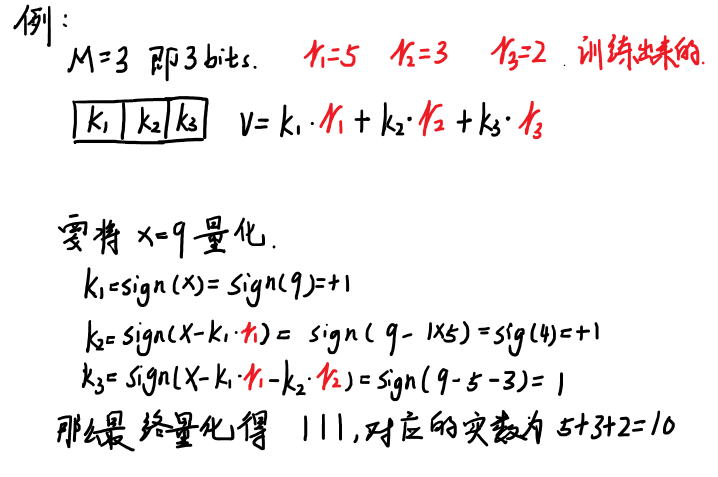 例：
M=3 即3bits. r₁=5 r₂=3 r₃=2. 训练出来的.
k₁ k₂ k₃ V= k₁·r₁ + k₂·r₂ + k₃·r₃
要将 x=9 量化.
k₁=sign(x)= sign(9)=+1
k₂= sign(x-k₁·r₁)= sign( 9- 1×5) =sig(4)=+1
k₃= sign(x-k₁·r₁-k₂·r₂)=sign(9-5-3)= 1
那么最终量化得 111,对应的实数为 5+3+2=10